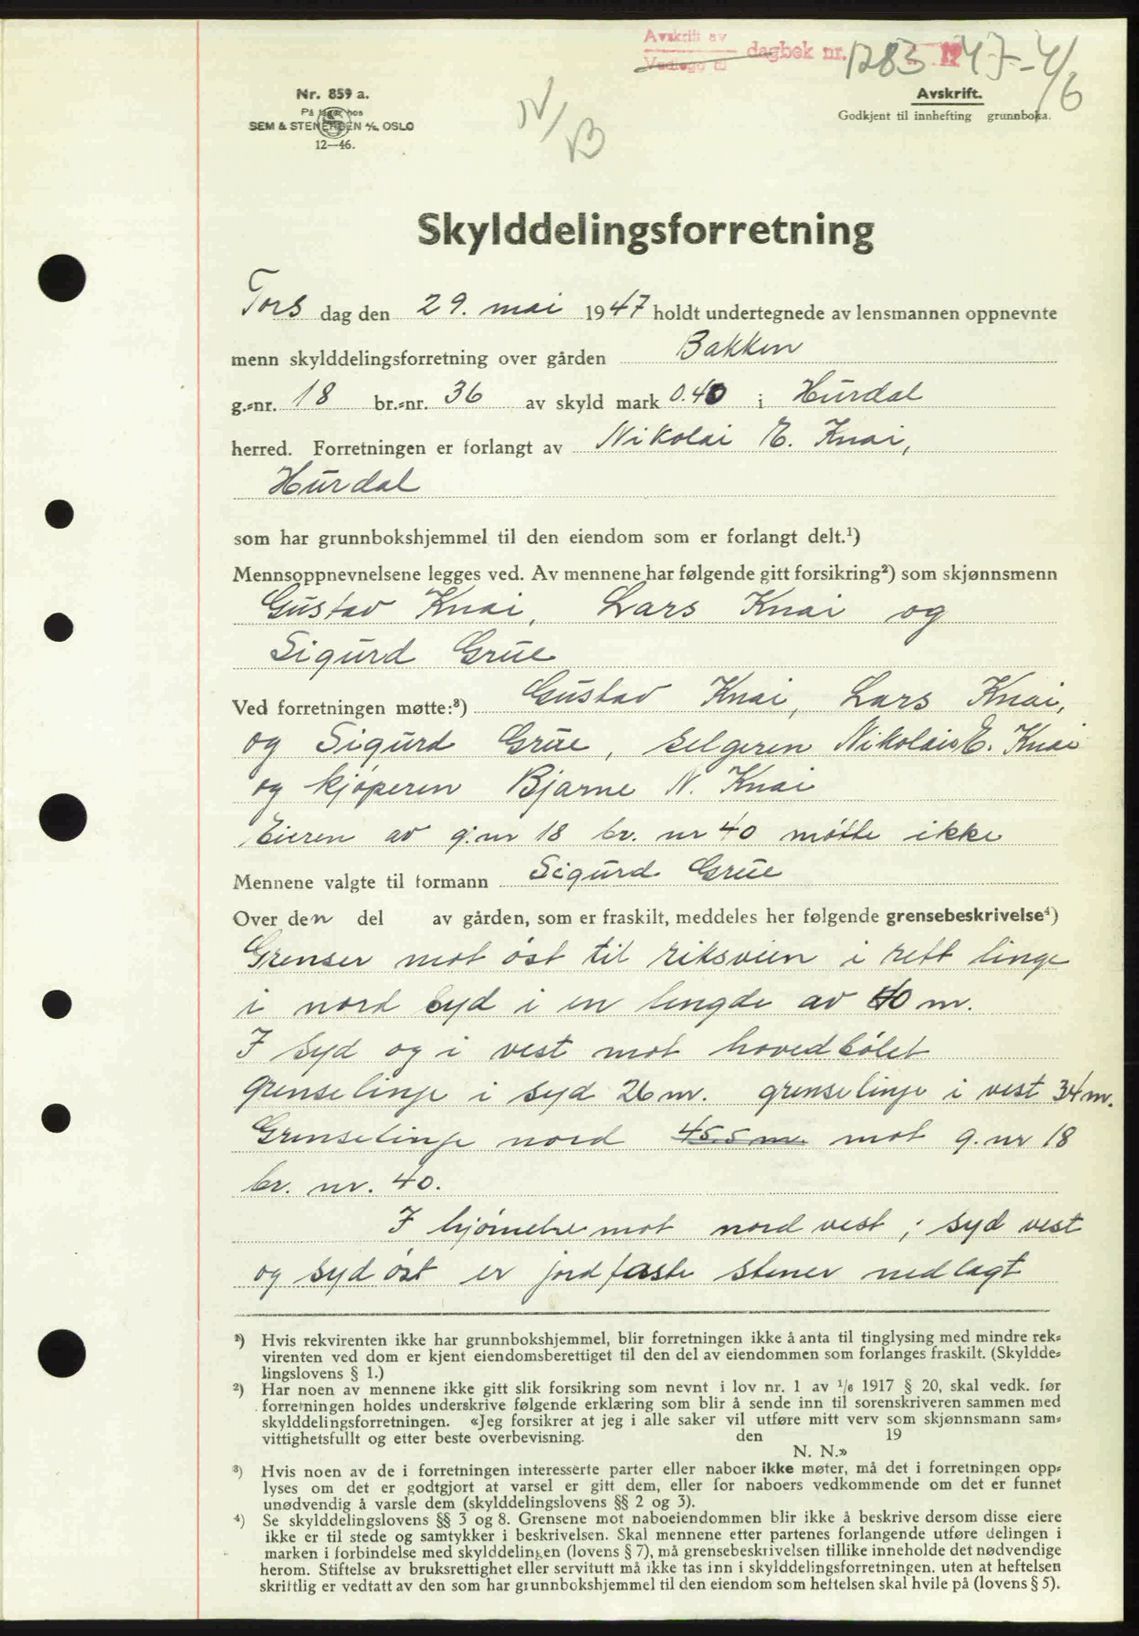 Avskrift av
Vedlegg til dagbok nr. 1283 1947-4/6
Nr. 859 a.
På lager hos
SEM & STENERSEN A/S, OSLO
12—46.
N/B
Avskrift.
Godkjent til innhefting grunnboka.
Skylddelingsforretning
Tors dag den 29. mai 1947 holdt undertegnede av lensmannen oppnevnte
menn skylddelingsforretning over gården Bakken
g.-nr. 18 br.-nr. 36 av skyld mark 0.40 i Hurdal
herred. Forretningen er forlangt av Nikolai E. Knai,
Hurdal
som har grunnbokshjemmel til den eiendom som er forlangt delt.¹)
Mennsoppnevnelsene legges ved. Av mennene har følgende gitt forsikring²) som skjønnsmenn
Gustav Knai, Lars Knai og
Sigurd Grue
Ved forretningen møtte:³) Gustav Knai, Lars Knai,
og Sigurd Grue, selgeren Nikolai E. Knai
og kjøperen Bjarne N. Knai
Eieren av g.nr 18 br. nr 40 møtte ikke
Mennene valgte til formann Sigurd Grue
Over den del av gården, som er fraskilt, meddeles her følgende grensebeskrivelse⁴)
Grenser mot øst til riksveien i rett linge
i nord syd i en lengde av 40 m.
I syd og i vest mot hovedbølet
grenselinje i syd 26 m. grenselinje i vest 34 m.
Grenselinje nord 45.5 m. mot g. nr 18
br. nr. 40.
I hjørnelne mot nord vest, syd vest
og syd øst er jordfaste stener nedlagt
¹) Hvis rekvirenten ikke har grunnbokshjemmel, blir forretningen ikke å anta til tinglysing med mindre rek-
virenten ved dom er kjent eiendomsberettiget til den del av eiendommen som forlanges fraskilt. (Skyldde-
lingslovens § 1.)
²) Har noen av mennene ikke gitt slik forsikring som nevnt i lov nr. 1 av 1/6 1917 § 20, skal vedk. før
forretningen holdes underskrive følgende erklæring som blir å sende inn til sorenskriveren sammen med
skylddelingsforretningen. «Jeg forsikrer at jeg i alle saker vil utføre mitt verv som skjønnsmann sam-
vittighetsfullt og etter beste overbevisning. den 19
N. N.»
³) Hvis noen av de i forretningen interesserte parter eller naboer ikke møter, må det i forretningen opp-
lyses om det er godtgjort at varsel er gitt dem, eller for naboers vedkommende om det er funnet
unødvendig å varsle dem (skylddelingslovens §§ 2 og 3).
⁴) Se skylddelingslovens §§ 3 og 8. Grensene mot naboeiendommen blir ikke å beskrive dersom disse eiere
ikke er til stede og samtykker i beskrivelsen. Skal mennene etter partenes forlangende utføre delingen i
marken i forbindelse med skylddelingen (lovens § 7), må grensebeskrivelsen tillike inneholde det nødvendige
herom. Stiftelse av bruksrettighet eller servitutt må ikke tas inn i skylddelingsforretningen, uten at heftelsen
skriftlig er vedtatt av den som har grunnbokshjemmel til den eiendom som heftelsen skal hvile på (lovens § 5).